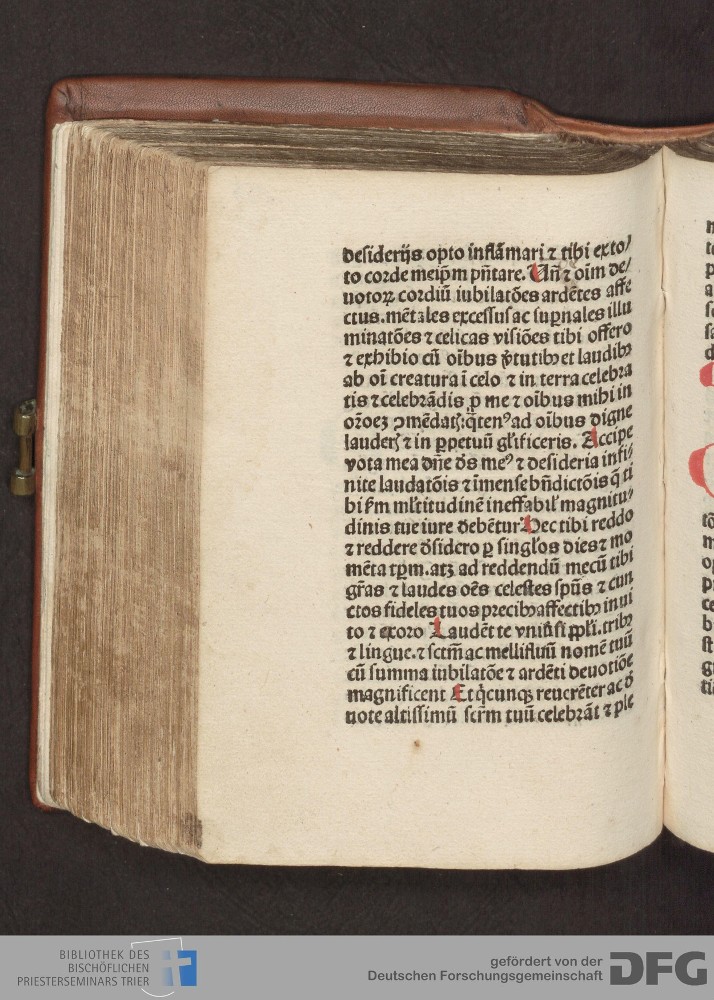 desiderijs opto inflãmari ⁊ tibi ex to/
to corde meip̃m p̃ñtare. Uñ ⁊ oim̃ de/
uotoꝝ cordiũ iubilatões ardẽtes affe
ctus. mẽtales excessus ac sup̱nales illu
minatões ⁊ celicas visiões tibi offero
⁊ exhibio cũ oĩbus ṽtutibꝰ et laudibꝫ
ab oĩ creatura ĩ celo ⁊ in terra celebra
tis ⁊ celebrãdis p̱ me ⁊ oĩbus mihi in
or̃oeꝫ ꝯmẽdatꝭ: q̃tenꝰ ad oĩbus digne
lauderꝭ ⁊ in p̱petuũ gl̃ificeris. Accipe
vota mea dñe ds̃ meꝰ ⁊ desideria infi/
nite laudatõis ⁊ ĩmense bñdictõis q̃ ti
bi ẜm ml̃titudinẽ ineffabil̃ magnitu/
dinis tue iure debẽtur Hec tibi reddo
⁊ reddere dsidero p̱ singl̃os dies ⁊ mo
mẽta tp̱m. atꝫ ad reddendũ mecũ tibi
gr̃as ⁊ laudes oẽs celestes sp̃us ⁊ cun
ctos fideles tuos precibꝫ affectibꝫ in ui
to ⁊ exoro Laudẽt te vniũsi pp̃li. tribꝫ
⁊ lingue. ⁊ sctm̃ ac mellifluũ nomẽ tuũ
cũ summa iubilatõe ⁊ ardẽti deuotiõe
magnificent Et q̃cunqꝫ reuerẽter ac d̃
uote altissimũ scr̃m tuũ celebrãt ⁊ ple
BIBLIOTHEK DES
BISCHÖFLICHEN
PRIESTERSEMINARS TRIER
gefördert von der
Deutschen Forschungsgemeinschaft DFG